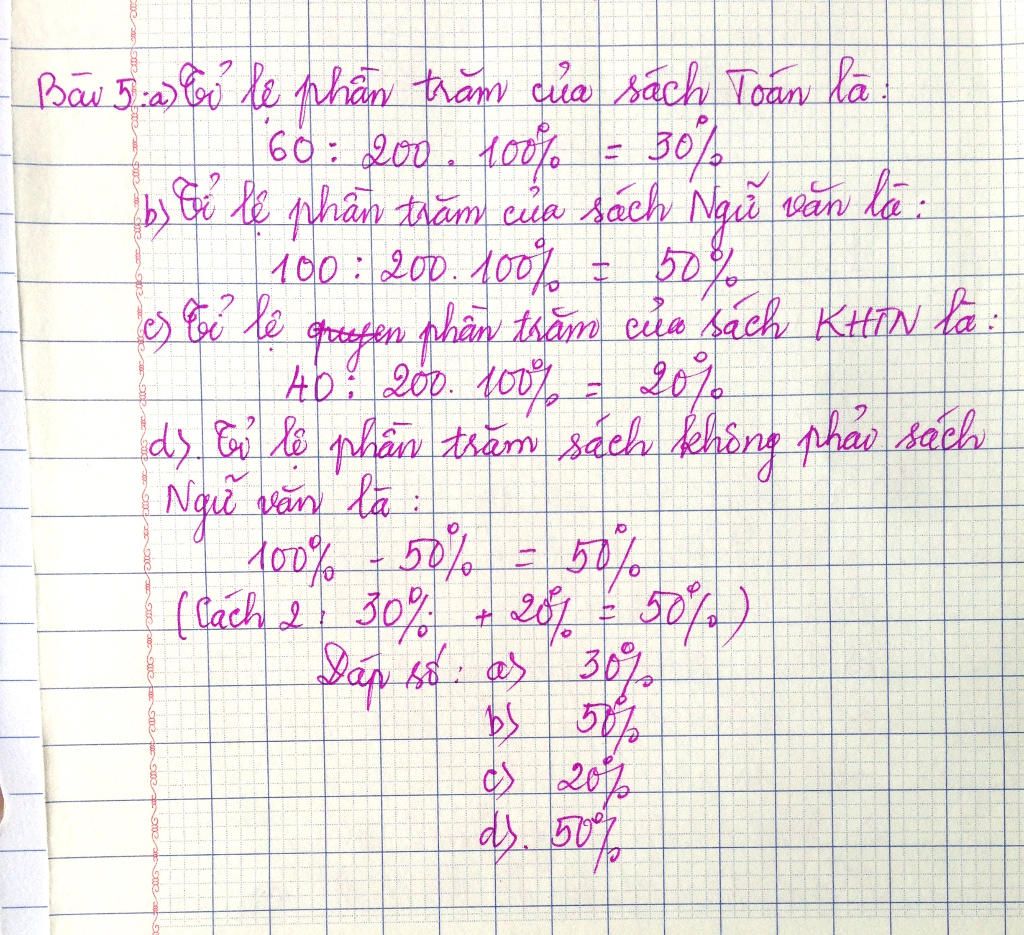 Bài 5: a) Tỉ lệ phần trăm của sách Toán là:
60 : 200 . 100% = 30%
b) Tỉ lệ phần trăm của sách Ngữ văn là:
100 : 200. 100% = 50%
c) Tỉ lệ quyen phần trăm của sách KHTN là:
40 : 200. 100% = 20%
d). Tỉ lệ phần trăm sách không phải sách
Ngữ văn là :
100% - 50% = 50%
(Cách 2 : 30% + 20% = 50%)
Đáp số : a) 30%
b) 50%
c) 20%
d). 50%